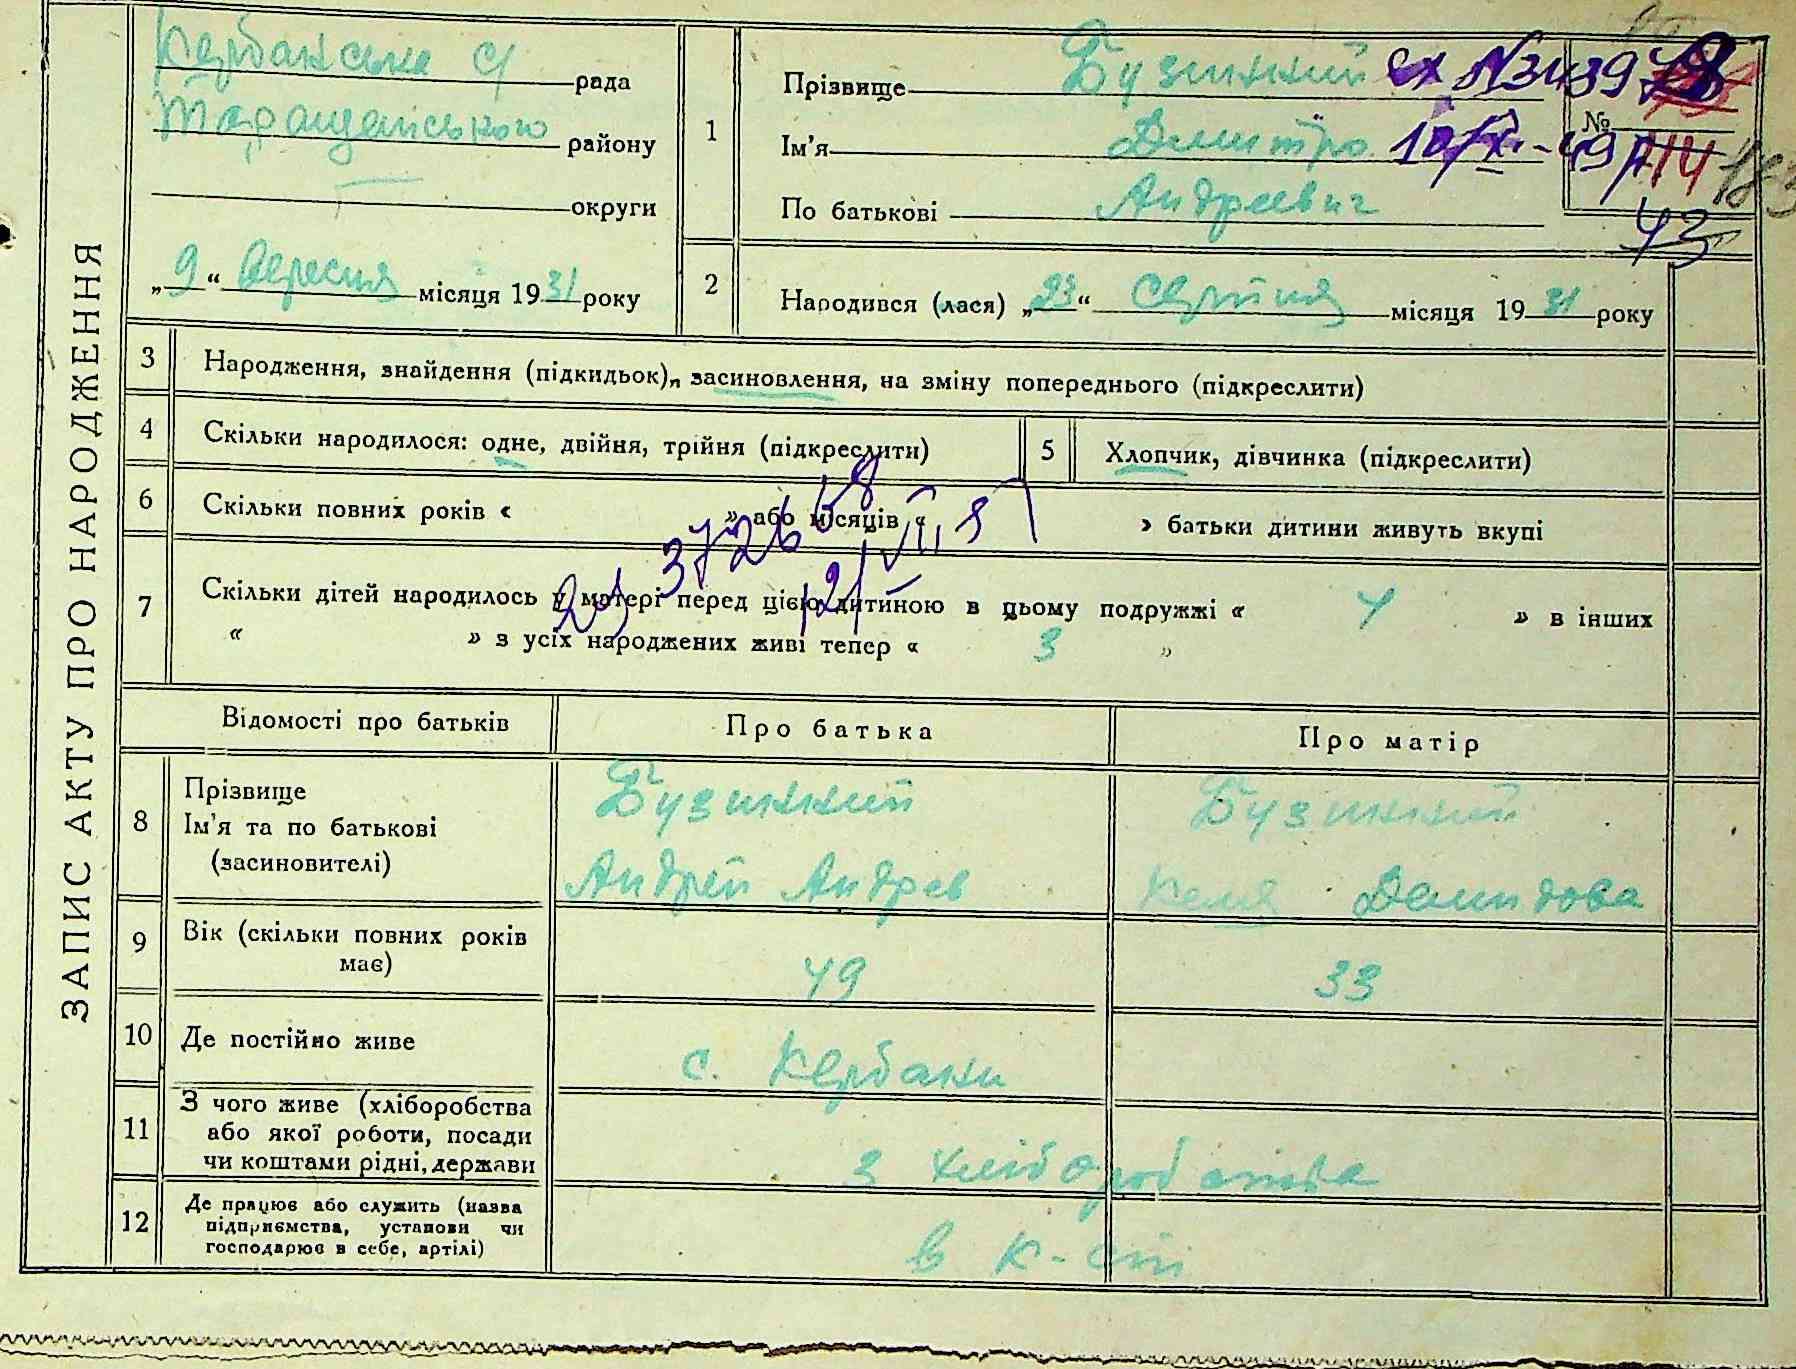 ЗАПИС АКТУ ПРО НАРОДЖЕННЯ
Кербанська с/ рада
Таращанського району
округи
„9“ Вересня місяця 1931 року
1
Прізвище Бузинний
Ім'я Дмитро
По батькові Андреевич
№
43
2
Народився (лася) „23“ Серпня місяця 1931 року
3 Народження, знайдення (підкидьок), засиновлення, на зміну попереднього (підкреслити)
4 Скільки народилося: одне, двійня, трійня (підкреслити)
5 Хлопчик, дівчинка (підкреслити)
6 Скільки повних років « » або місяців « » батьки дитини живуть вкупі
7 Скільки дітей народилось у матері перед цією дитиною в цьому подружжі « 4 » в інших
« » з усіх народжених живі тепер « 3 »
Відомості про батьків Про батька Про матір
8 Прізвище
Ім'я та по батькові
(засиновителі)
Бузинний
Андрей Андрев
Бузинний
Демидова
9 Вік (скільки повних років
має)
49 33
10 Де постійно живе с. Кербани
11 З чого живе (хліборобства
або якої роботи, посади
чи коштами рідні, держави
з хліборобства
12 Де працює або служить (назва
підприємства, установи чи
господарює в себе, артілі)
в к-сті